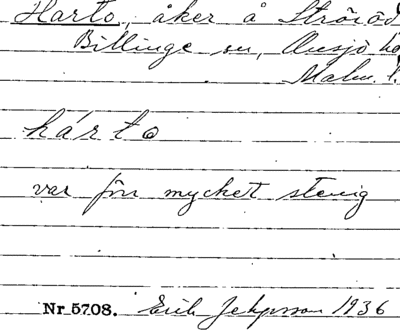 Harto, åker å Ströröd
Billinge sn, Onsjö hd
Malm. l.
hárto
var förr mycket stenig
Nr 5708. Erik Jeppsson 1936